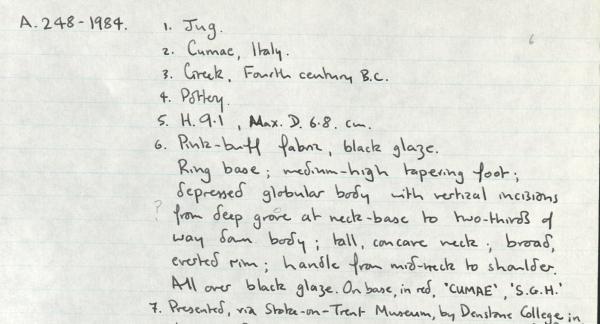 A. 248-1984. 1. Jug.
2. Cumae, Italy.
3. Greek, Fourth century B.C.
4. Pottery.
5. H. 9.1, Max. D. 6.8. cm.
6. Pink-buff fabric, black glaze.
Ring base; medium-high tapering foot;
depressed globular body with vertical incisions
? from deep grove at neck-base to two-thirds of
way down body; tall, concave neck; broad,
everted rim; handle from mid-neck to shoulder.
All over black glaze. On base, in red, 'CUMAE', 'S.G.H.'
7. Presented, via Stoke-on-Trent Museum, by Denstone College in